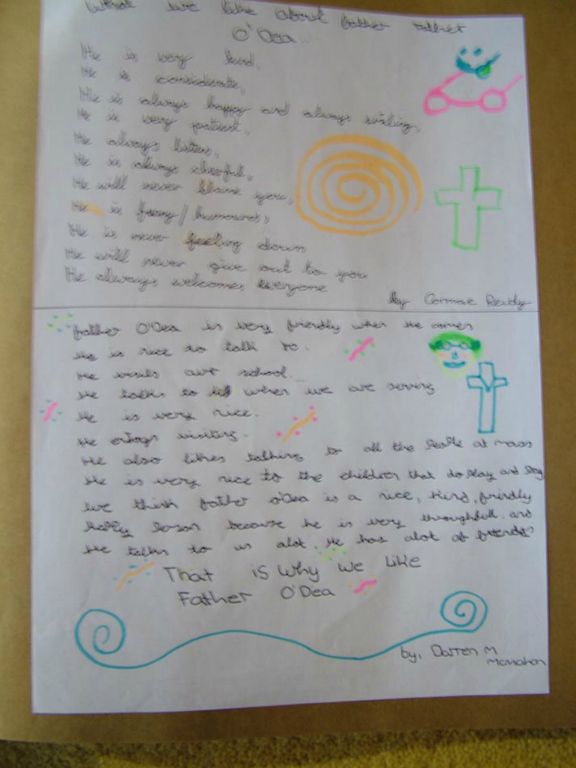 What we like about father
O'Dea
He is very kind,
He is considerate,
He is always happy and always smiling,
He is very patient,
He always listens,
He is always cheerful,
He will never blame you,
He is funny / humourus,
He is never feeling down
He will never give out to you
He always welcomes everyone
By Cormac Reidy
father O'Dea is very friendly when He comes
He is nice to talk to.
He visits our school.
He talks to us when we are serving
He is very nice.
He enjoys visiting.
He also likes talking to all the people at mass
He is very nice to the children that do play and
We think father O'Dea is a nice, kind, friendly
happy person because he is very throughfull and
He talks to us alot He has alot of friends
That is why we like
Father O'Dea
by, Darren M
Monahan